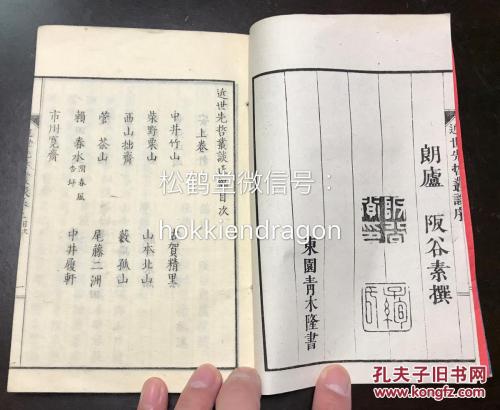 近世先哲叢談序
朗廬 阪谷素撰
東園青木隆書
近世先哲叢談正編目次
上卷
中井竹山
古賀精里
柴野栗山
山本北山
西山拙齋
藪孤山
菅茶山
尾藤二洲
賴春水 附春風 杏坪
中井履軒
市川寬齋
松鹤堂微信号:
hokkiendragon
孔夫子旧书网
www.kongfz.com